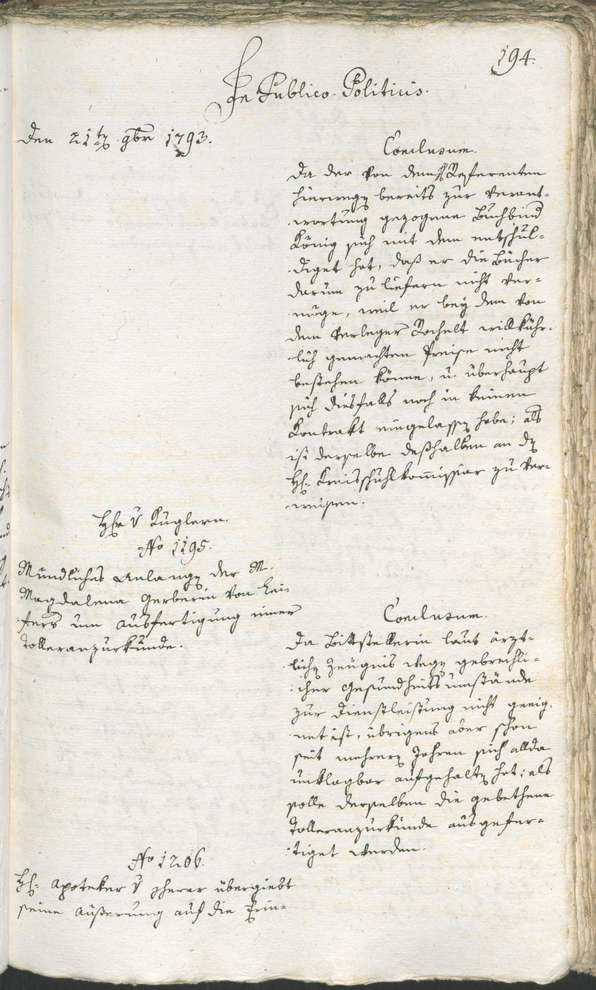 194.
In Publico-Politicis.
Den 21ten 9br 1793.
Conclusum.
Da der von dem H. Referenten
hierwegen bereits zur Verant-
wortung gezogene Buchbind
König sich mit dem entschul-
diget hat, daß er die Bücher
darum zu liefern nicht ver-
möge, weil er bey dem von
dem Verleger Rochelt willkühr-
lich gemachten Preise nicht
bestehen könne, u. überhaupt
sich diesfalls noch in keinen
Kontrakt eingelassen habe; als
ist derselbe deßhalben an den
H. Kreisschulkommissär zu ver-
weisen.
H. v Kuglern.
No 1195.
Mündliches Anlangen der M.
Magdalena Gerberin von Lai-
fers um Ausfertigung einer
Tolleranzurkunde.
Conclusum.
Da Bittstellerin laut ärzt-
lichen Zeugnis wegen gebrechli-
cher Gesundheitsumstände
zur Dienstleistung nicht geeig-
net ist, übrigens aber schon
seit mehrern Jahren sich allda
unklagbar aufgehalten hat; als
solle derselben die gebethene
Tolleranzurkunde ausgefer-
tiget werden.
No 1206.
H. Apoteker v übergiebt
seine Äußerung auf die Erin-